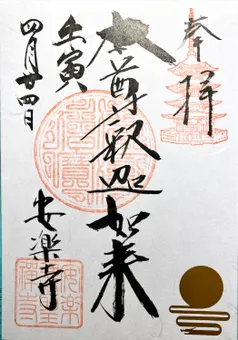 奉拝
本尊釈迦如来
壬寅
四月廿四日
安楽寺